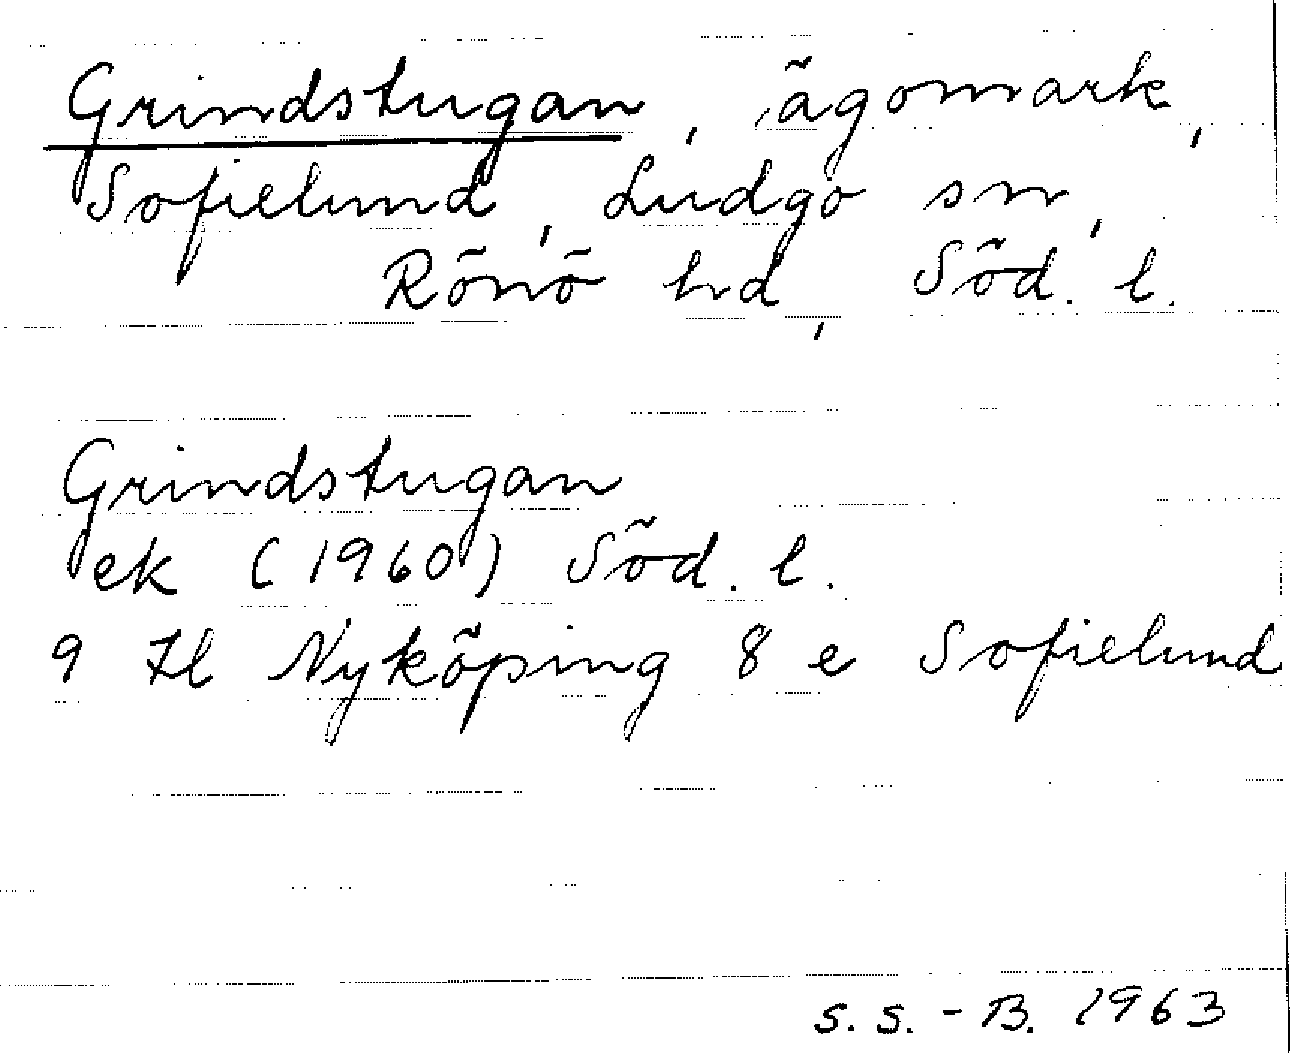 Grindstugan, ägomark,
Sofielund, Ludgo sn,
Rönö hd, Söd. l.
Grindstugan
ek (1960) Söd. l.
9 Hl Nyköping 8 e Sofielund
S. S. - B. 1963